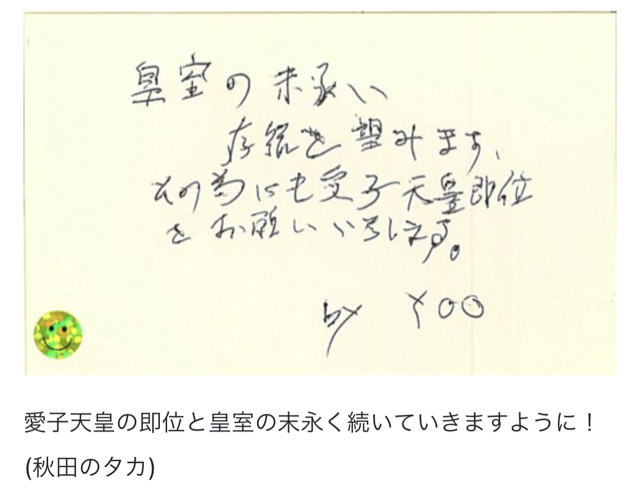 皇室の末永い
存続を望みます、
その為にも愛子天皇即位
をお願いいたします。
by YOO
愛子天皇の即位と皇室の末永く続いていきますように！
(秋田のタカ)